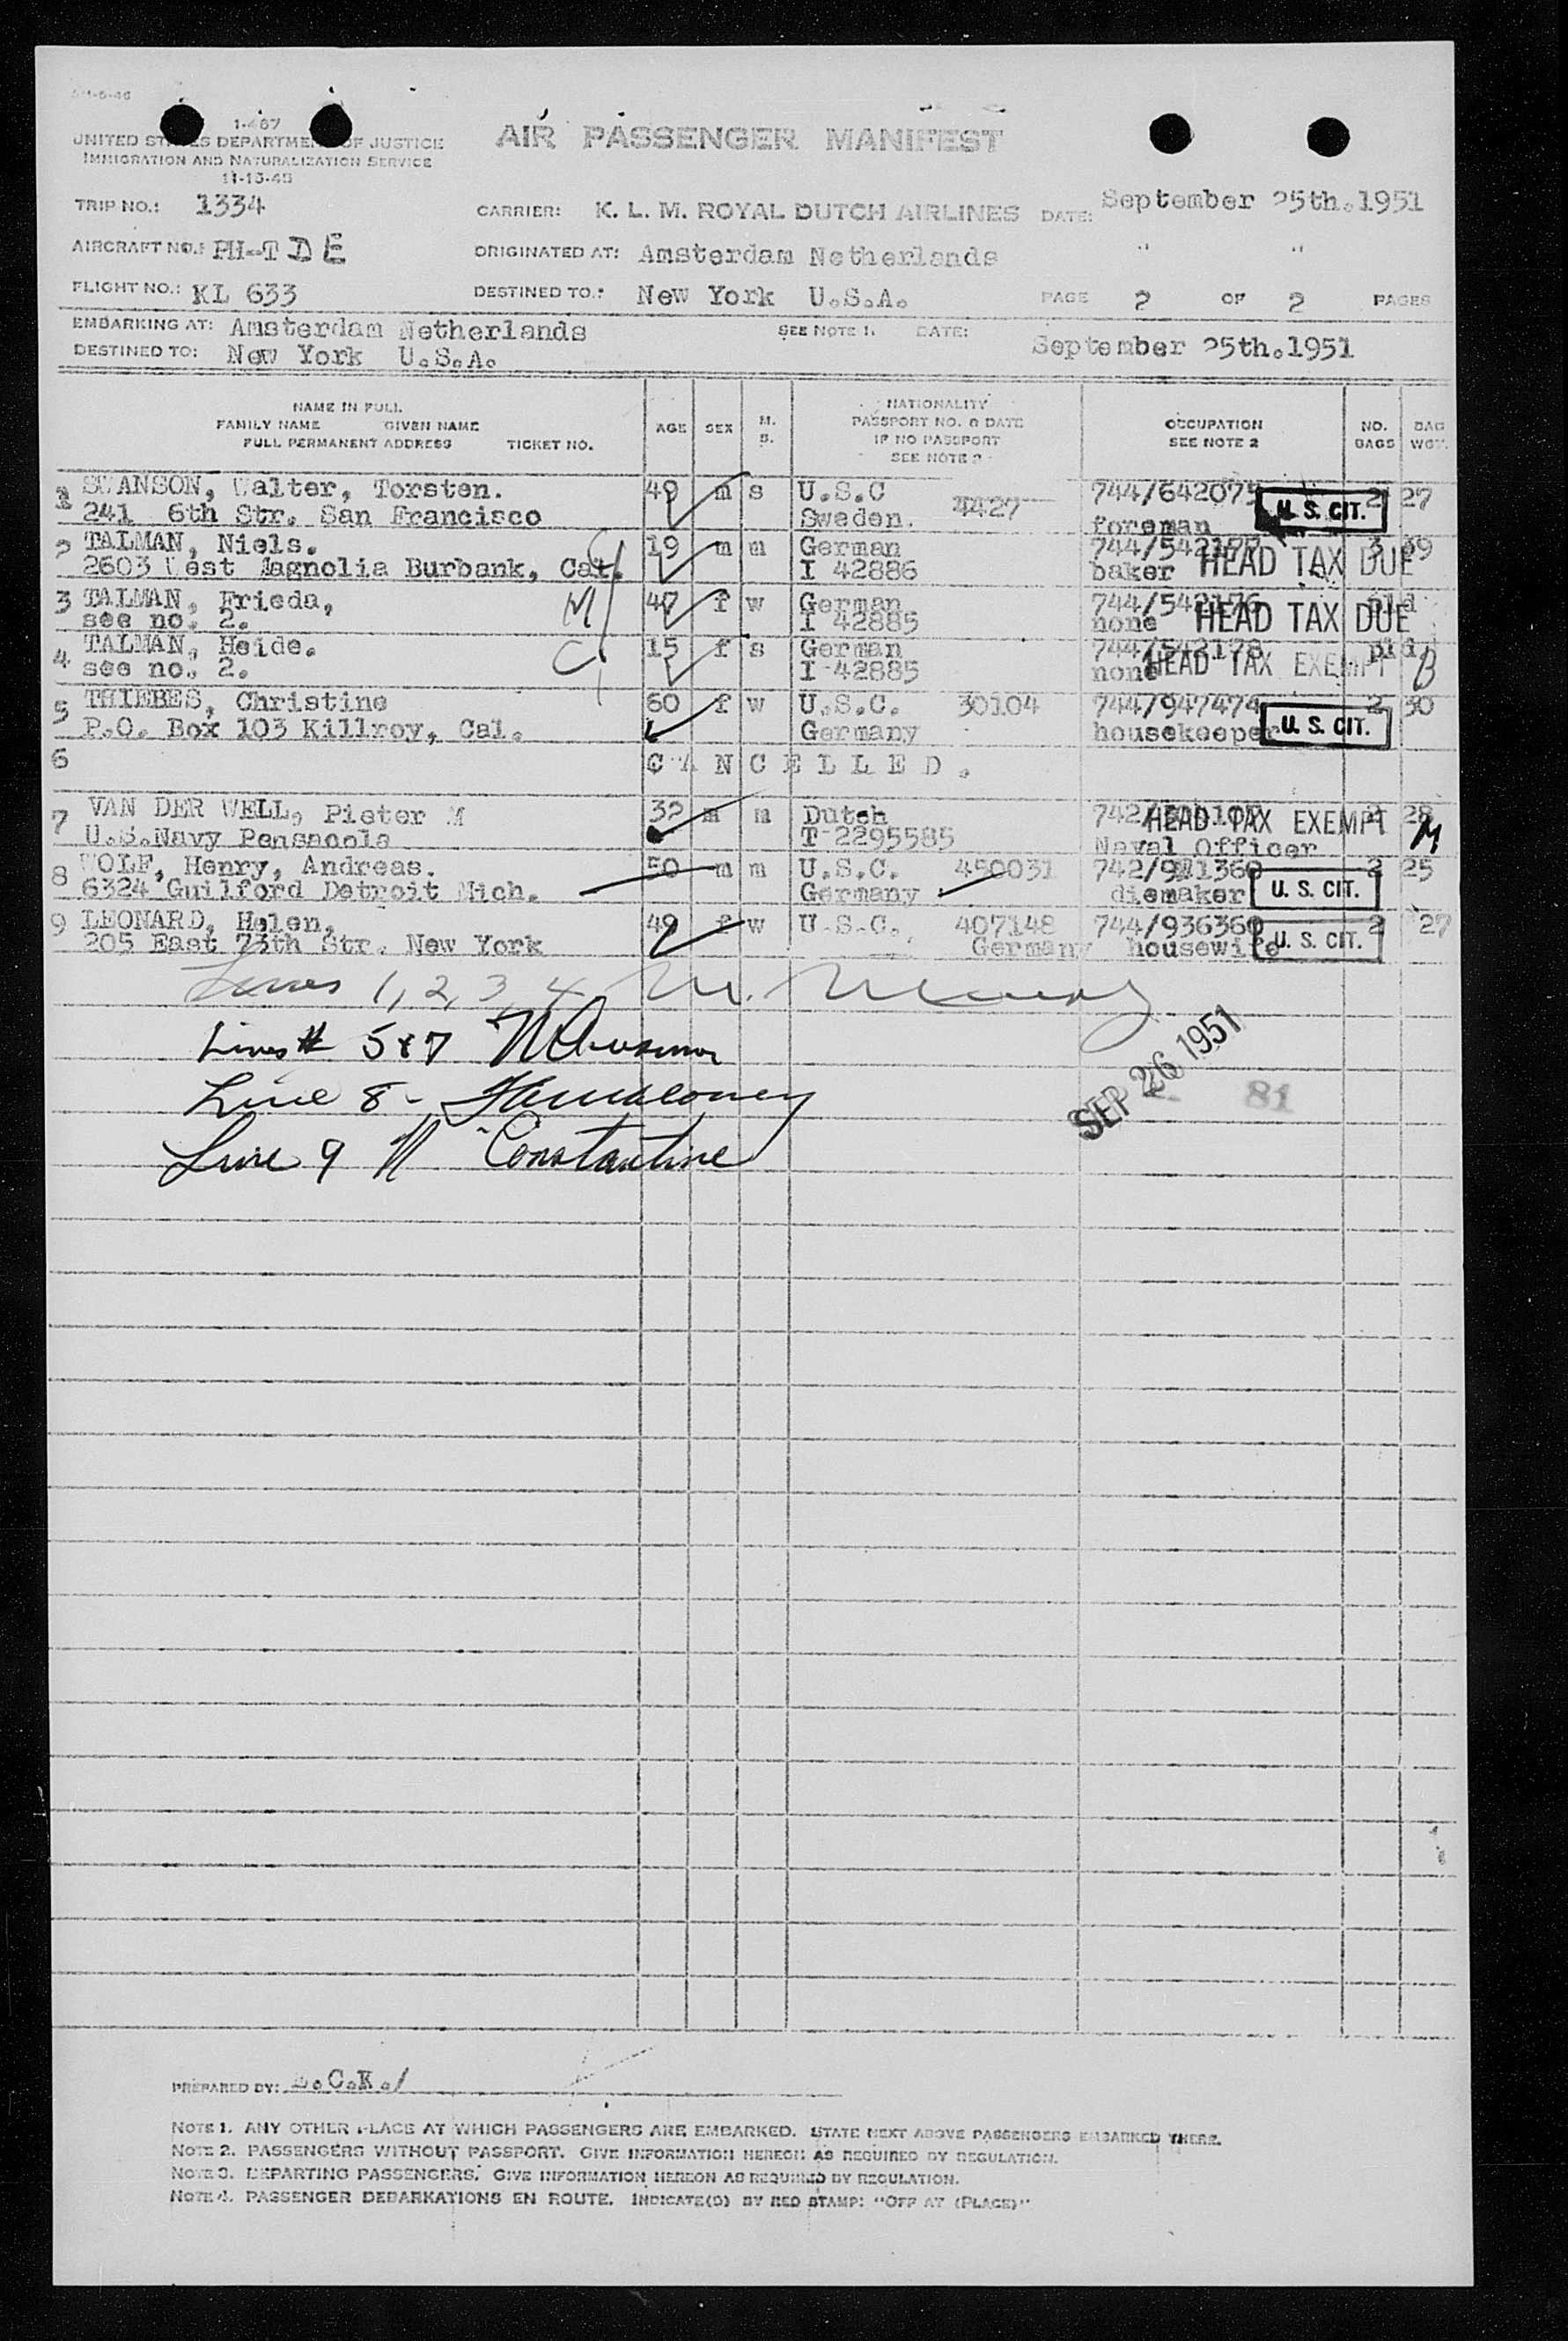 1-467
UNITED STATES DEPARTMENT OF JUSTICE
IMMIGRATION AND NATURALIZATION SERVICE
11-13-45
AIR PASSENGER MANIFEST
TRIP NO.: 1334
CARRIER: K. L. M. ROYAL DUTCH AIRLINES DATE: September 25th.1951
AIRCRAFT NO.: PH-T D E
ORIGINATED AT: Amsterdam Netherlands " "
FLIGHT NO.: KL 633
DESTINED TO.: New York U.S.A. PAGE 2 OF 2 PAGES
EMBARKING AT: Amsterdam Netherlands SEE NOTE 1. DATE:
DESTINED TO: New York U.S.A. September 25th.1951
NAME IN FULL
FAMILY NAME GIVEN NAME
FULL PERMANENT ADDRESS TICKET NO.
AGE SEX M. S.
NATIONALITY
PASSPORT NO. & DATE
IF NO PASSPORT
SEE NOTE 2
OCCUPATION
SEE NOTE 2
NO. BAGS
BAG WGT.
1 SWANSON, Walter, Torsten. 49 m s U.S.C 4427 744/642075 2 27
241 6th Str. San Francisco Sweden. foreman U. S. CIT.
2 TALMAN, Niels. 19 m m German 744/542177 3 39
2603 West Magnolia Burbank, Cal. I 42886 baker HEAD TAX DUE
3 TALMAN, Frieda, 47 f w German 744/542176 pld
see no. 2. I 42885 none HEAD TAX DUE
M
4 TALMAN, Heide. 15 f s German 744/542178 pld
see no. 2. I-42885 none HEAD TAX EXEMPT
5 THIEBES, Christine 60 f w U.S.C. 30104 744/947474 2 30
P.O. Box 103 Killroy, Cal. Germany housekeeper U. S. CIT.
6 C A N C E L L E D .
7 VAN DER WELL, Pieter M 32 m m Dutch 742/ HEAD TAX EXEMPT 2 28
U.S.Navy Pensacola T-2295585 Naval Officer M
8 WOLF, Henry, Andreas. 50 m m U.S.C. 450031 742/911360 2 25
6324 Guilford Detroit Mich. Germany diemaker U. S. CIT.
9 LEONARD, Helen, 49 f w U.S.C. 407148 744/936360 2 27
205 East 73th Str. New York Germany housewife U. S. CIT.
Lines 1, 2, 3, 4 M.
Lines # 5 & 7
Line 8 -
Line 9 N Constantine
SEP 26 1951
81
PREPARED BY: C.K./
NOTE 1. ANY OTHER PLACE AT WHICH PASSENGERS ARE EMBARKED. STATE NEXT ABOVE PASSENGERS EMBARKED THERE.
NOTE 2. PASSENGERS WITHOUT PASSPORT. GIVE INFORMATION HEREON AS REQUIRED BY REGULATION.
NOTE 3. DEPARTING PASSENGERS. GIVE INFORMATION HEREON AS REQUIRED BY REGULATION.
NOTE 4. PASSENGER DEBARKATIONS EN ROUTE. INDICATE(D) BY RED STAMP: "OFF AT (PLACE)"